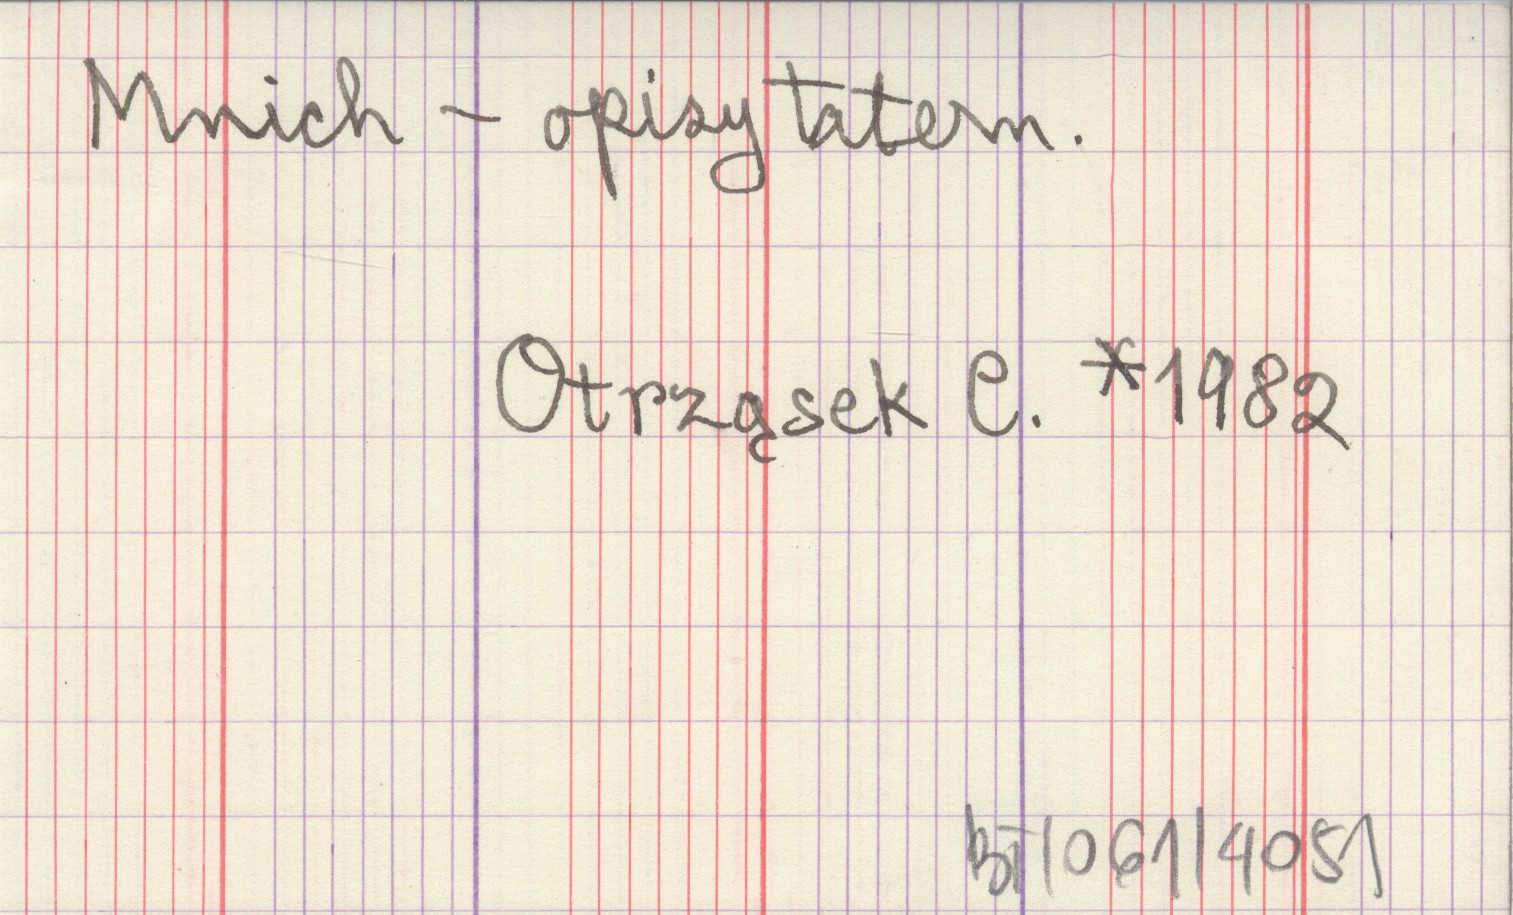 Mnich - opisy tatern.
Otrząsek C. *1982
BT/061/4051